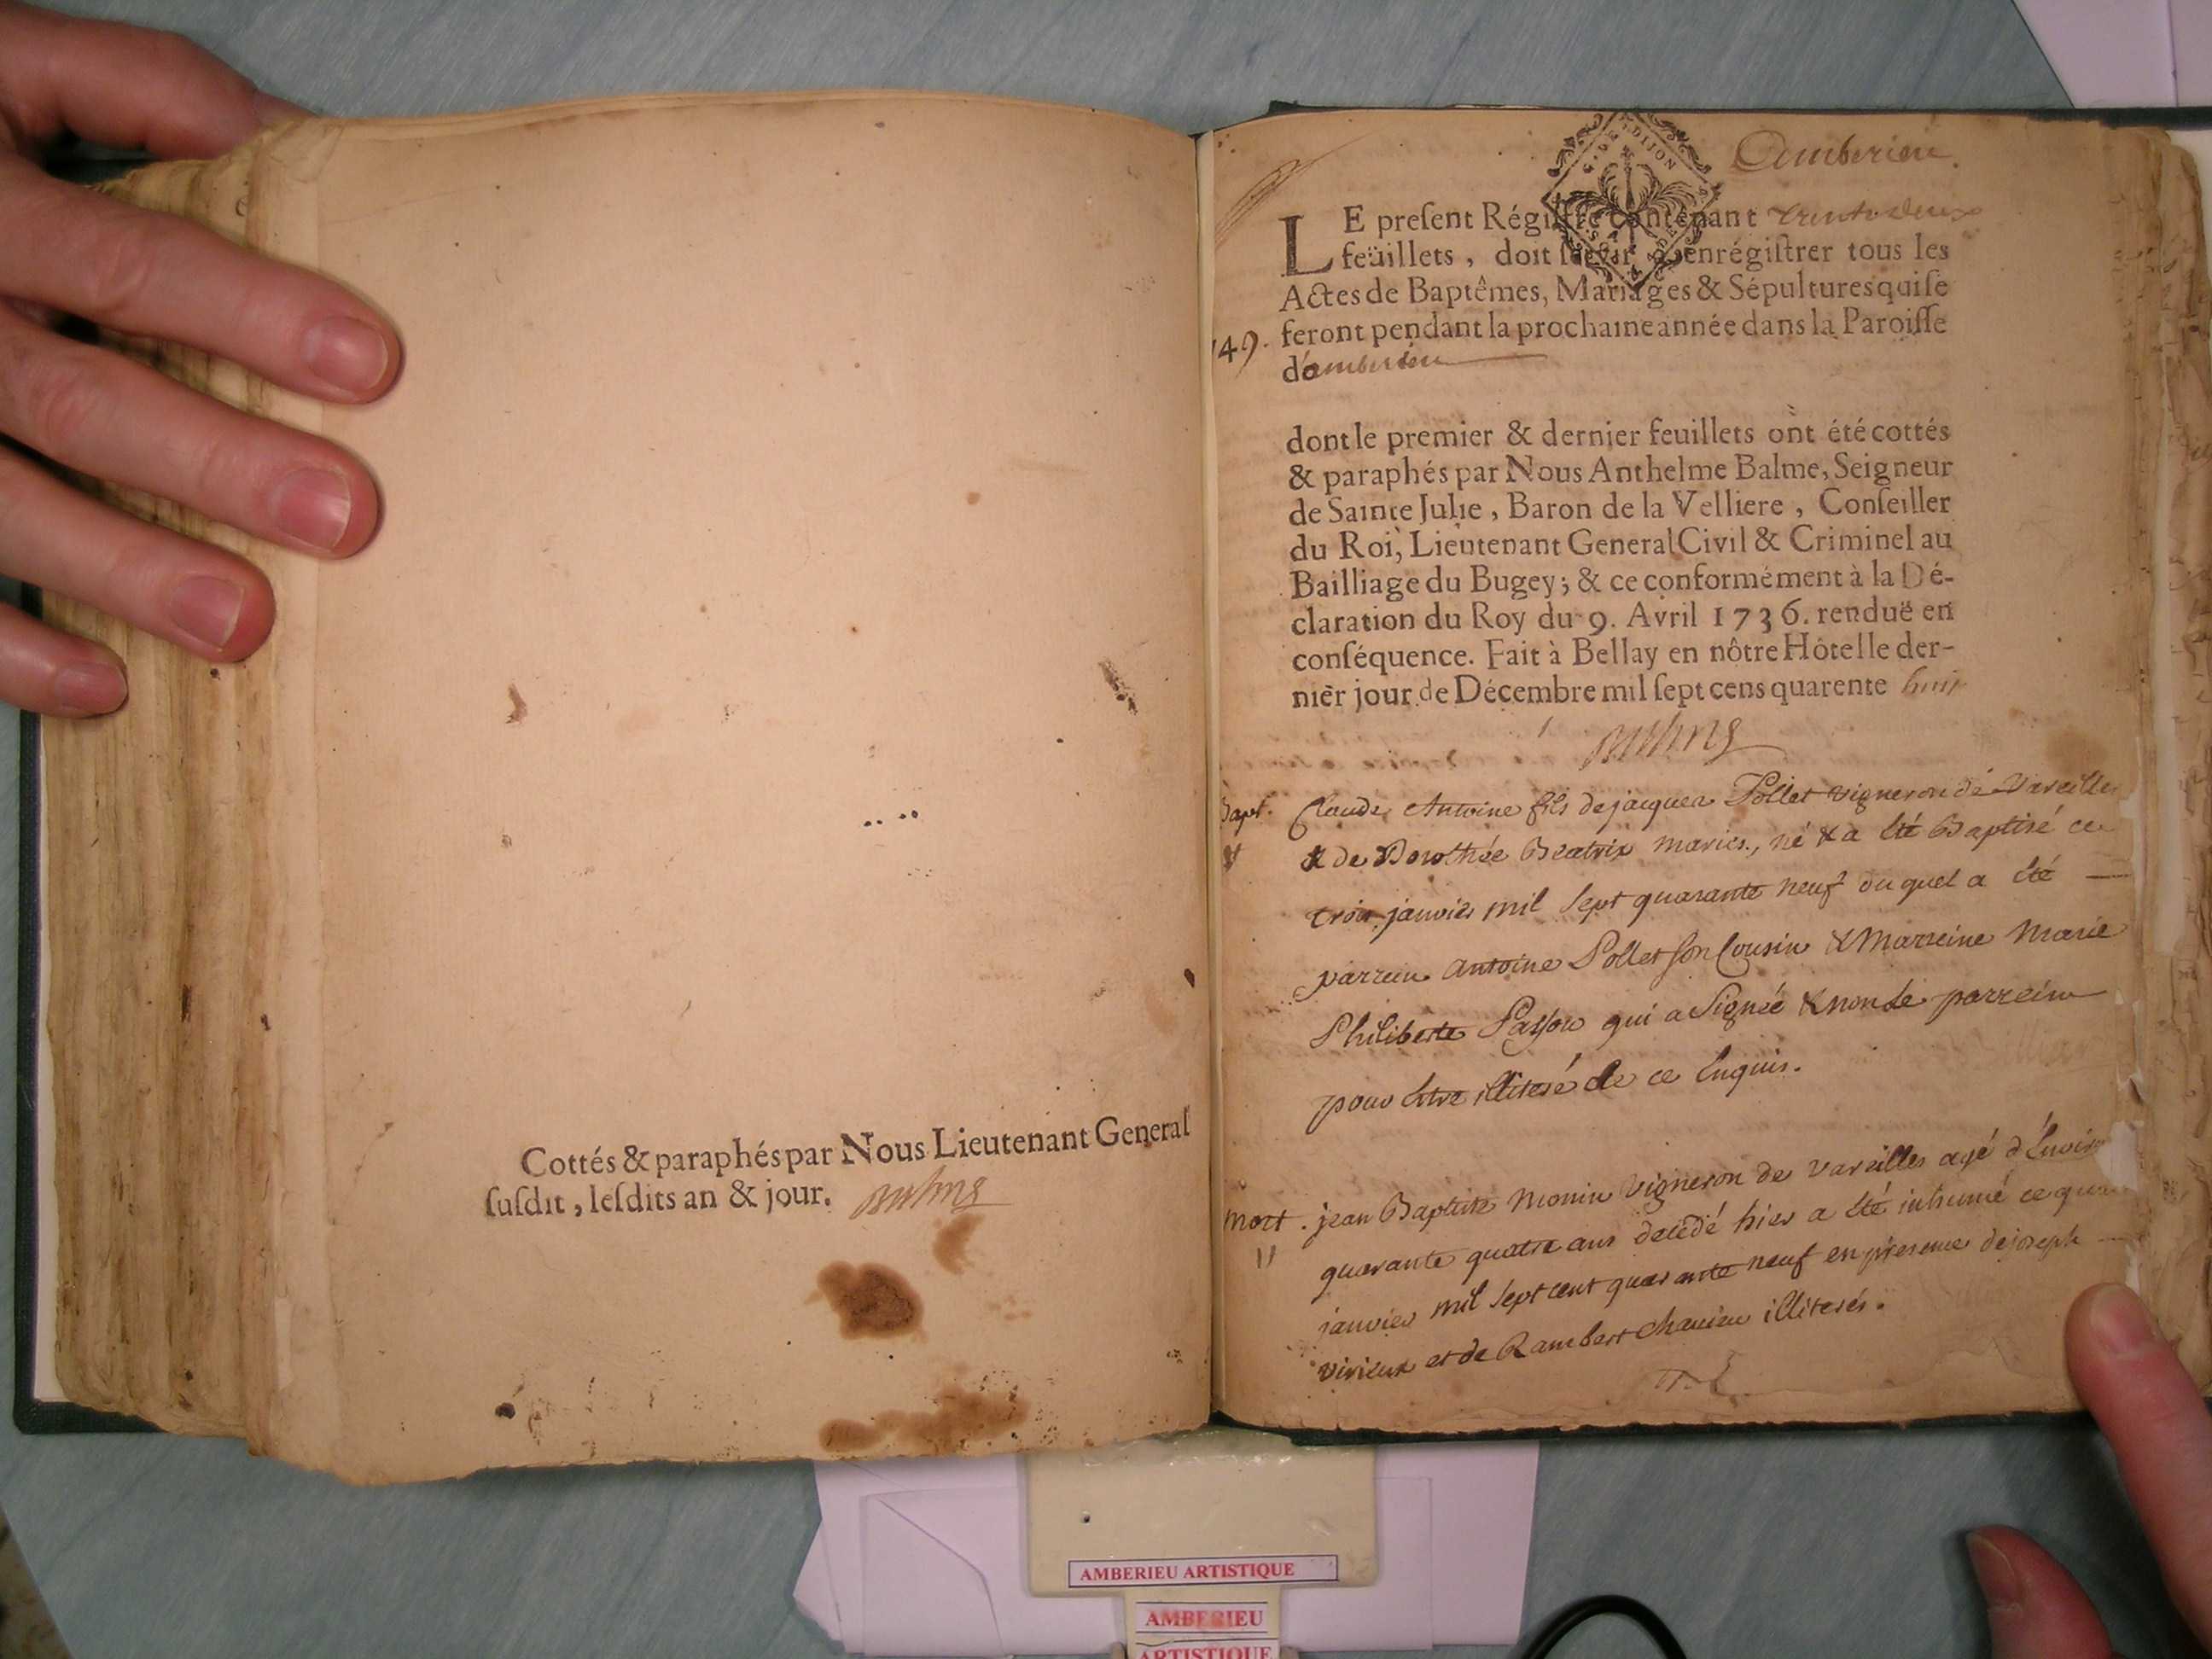 Cottés & paraphés par Nous Lieutenant General
ſuſdit, leſdits an & jour.
G. DE DIJON
Amberieu.
LE preſent Régiſtre contenant trente deux
feüillets, doit ſervir à enrégiſtrer tous les
Actes de Baptêmes, Mariages & Sépultures qui ſe
feront pendant la prochaine année dans la Paroiſſe
49.
d'amberieu
dont le premier & dernier feuillets ont été cottés
& paraphés par Nous Anthelme Balme, Seigneur
de Sainte Julie, Baron de la Velliere, Conſeiller
du Roi, Lieutenant General Civil & Criminel au
Bailliage du Bugey; & ce conformément à la Dé-
claration du Roy du 9. Avril 1736. renduë en
conſéquence. Fait à Bellay en nôtre Hôtel le der-
nièr jour de Décembre mil ſept cens quarente huit
Bapt. Claude Antoine fils de jacques Pollet vigneron de Vareilles
& de Dorothée Beatrix mariés, né & a été Baptisé ce
trois janvier mil sept quarante neuf duquel a été
parrein Antoine Pollet son Cousin & Marreine Marie
Philiberte qui a Signée & non le parrein
pour être illiteré de ce Enquis.
Mort. jean Baptiste Monin vigneron de vareilles agé d'Environ
quarante quatre ans décédé hier a été inhumé ce
janvier mil sept cent quarante neuf en presence de joseph
virieux et de Rambert illiterés.
AMBERIEU ARTISTIQUE
AMBERIEU
ARTISTIQUE